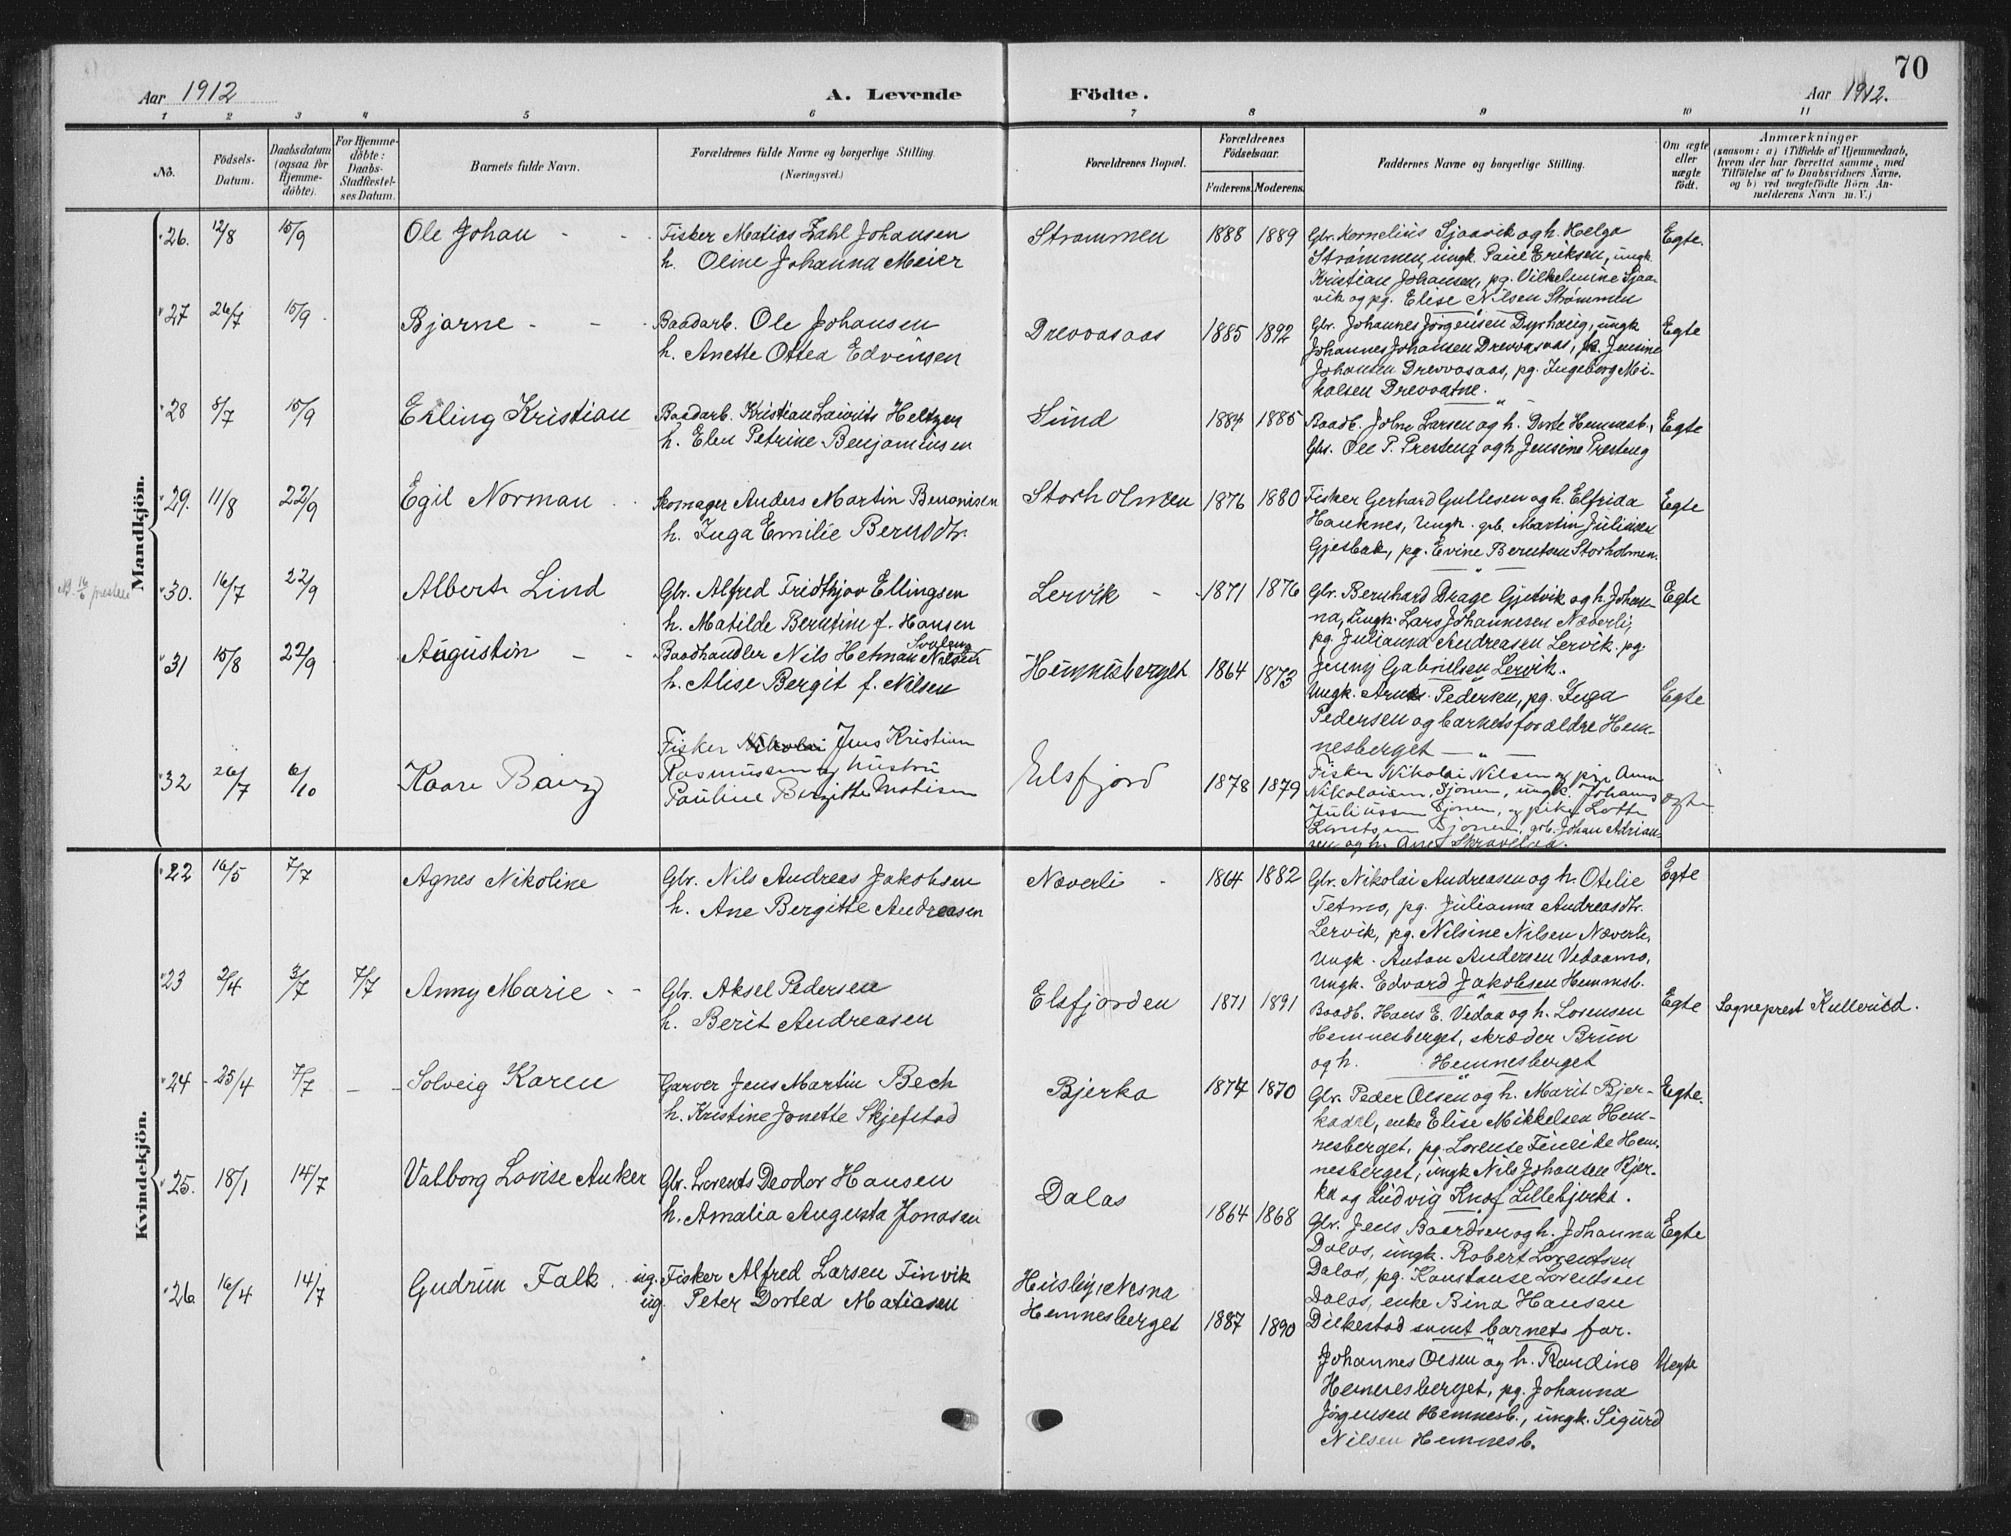 70
Aar 1912
A. Levende Födte.
Aar 1912.
1 2 3 4 5 6 7 8 9 10 11
No.
Födsels-Datum.
Daabsdatum (ogsaa for Hjemme-döbte).
For Hjemme-döbte: Daabs-Stadfæstel-ses Datum.
Barnets fulde Navn.
Forældrenes fulde Navne og borgerlige Stilling.
(Næringsvei.)
Forældrenes Bopæl.
Forældrenes Födselsaar.
Faderens. Moderens.
Faddernes Navne og borgerlige Stilling.
Om ægte eller uægte födt.
Anmærkninger
(saasom: a) i Tilfælde af Hjemmedaab,
hvem der har forrettet samme, med
Tilföielse af to Daabsvidners Navne,
og b) ved uægtefödte Börn An-
melderens Navn m. V.)
Mandkjön.
26. 12/8 15/9 Ole Johan - -
Fisker Matias Zahl Johansen
h. Oline Johanna Meier
Strømmen 1888 1889
Gbr. Kornelius Sjaavik og h. Helga
Strømmen, ungk. Paul Eriksen, ungk.
Kristian Johansen, pg. Vilhelmine Sjaa-
vik og pg. Elise Nilsen Strømmen
Egte.
27 26/7 15/9 Bjarne - -
Baadarb. Ole Johansen
h. Anette Ottea Edvinsen
Drevvasaas 1885 1892
Gbr. Johannes Jørgensen Dyrhaug, ungk
Johannes Johansen Drevvasaas, pg. Jensine
Johansen Drevvasaas, pg. Ingeborg Mi-
kalsen Drevvatne.
Egte
28 8/7 15/9 Erling Kristian
Baadarb. Kristian Laurits Heltzen
h. Elen Petrine Benjaminsen
Sund 1884 1885
Baadb. John Larsen og h. Dorte Hemnesb.,
Gbr. Ole P. Presteng og h. Jensine Presteng
Egte
29. 11/8 22/9 Egil Norman
Skomager Anders Martin Benonisen
h. Inga Emilie Berntdtr.
Storholmen 1876 1880
Fisker Gerhard Gullesen og h. Elfrida
Hauknes, Ungk. grb. Martin Juliussen
Gjesbak, pg. Evine Berntsen Storholmen.
Egte
30. 16/7 22/9 Albert Lind
Gbr. Alfred Fridthjov Ellingsen
h. Matilde Berntine f. Hansen
Lervik 1871 1876
Gbr. Bernhard Drage Gjesvik og h. Johan-
na, Ungk. Lars Johannesen Næverli,
pg. Julianna Andreasen Lervik. pg.
Jenny Gabrielsen Lervik.
Egte
31 15/8 22/9 Augustin - -
Baadhandler Nils Heman Nilsen
h. Alise Bergit f. Nilsen
Hemnesberget 1864 1873
Ungk. Arne Pedersen, pg. Inga
Pedersen og barnets forældre Hem-
nesberget
Egte
32 26/7 6/10 Kaare Bang
Fisker Nikolai Jens Kristian
Rasmussen og hustru
Pauline Bergitte Matisen
Elsfjord 1878 1879
Fisker Nikolai Nilsen og pige Anna
Nikolaisen, Sjonen, ungk. Johans
Juliussen Sjonen, og pike Lotte
Lorntsen Sjonen, grb. Johan Adrian-
sen og h. Ane Skravelaa.
ægte
Kvindekjön.
22 16/5 7/7 Agnes Nikoline
Gbr. Nils Andreas Jakobsen
h. Ane Bergitte Andreasen
Næverli 1864 1882
Gbr. Nikolai Andreasen og h. Otelie
Tetmo, pg. Julianna Andreasdtr.
Lervik, pg. Nilsine Nilsen Næverli,
Ungk. Anton Andersen Vedaamo,
Ungk. Edvard Jakobsen Hemnesb.
Egte
23 2/4 3/7 7/7 Anny Marie - -
Gbr. Aksel Pedersen
h. Berit Andreasen
Elsfjorden 1871 1891
Baadb. Hans E. Vedaa og h. Lorensen
Hemnesberget, skræder Brun
og h. Hemnesberget
Egte
Sogneprest Kullerud.
24 25/4 7/7 - - Solveig Karen
Garver Jens Martin Bech
h. Kristine Jonette Skjefstad
Bjerka 1874 1870
Gbr. Peder Olsen og h. Marit Bjer-
kadal, enke Elise Mikkelsen Hem-
nesberget, pg. Lorense Feineike Hem-
nesberget, ungk Nils Johansen Bjer-
ka og Ludvig Knof Lillebjerka.
Egte.
25. 18/1 14/7 Valborg Lovise Anker
Gbr. Lorents Deodor Hansen
h. Amalia Augusta Jonasen
Dalas 1864 1868
Gbr. Jens Baardsen og h. Johanna
Dalas, ungk. Robert Lorentsen
Dalas, pg. Konstanse Lorentsen
Dalas, enke Bina Hansen
Dilkestad samt barnets far.
Egte
26 16/4 14/7 Gudrun Falk.
ug. Fisker Alfred Larsen Finvik
ug. Peter Dortea Matiasen
Husby, Nesna
Hemnesberget 1887 1890
Johannes Olsen og h. Randine
Hemnesberget, pg. Johanna
Jørgensen Hemnesb., ungk. Sigurd
Nilsen Hemnesb.
Uegte